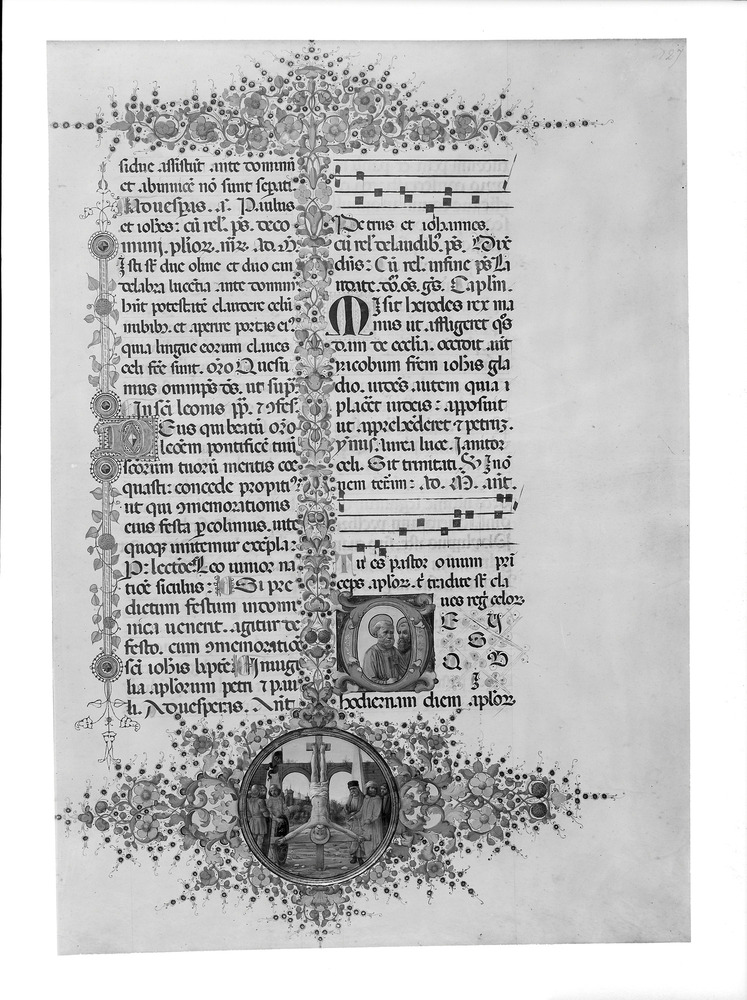 sicut assistut ante dominū
et abinuicē nō sunt sepati.
Ad uespas. a. Paulus
et iohes: cū rel. ps. de co
muni. plior. mr. Ad. M
Isti st due oliue et duo can
delabra lucētia ante dominū
hn̄t potestatē claudere celū
nubib. et aperire portas ei
quia lingue eorum claues
celi fce sunt. oro Quesu
mus omnips ds. ut sup.
In scī leonis pp. 7 9fes.
DEus qui beatū
leonem pontificē tuū
scorum tuorū meritis coe
quasti: concede propitiꝰ
ut qui 9memorationis
eius festa pcolimus. uite
quoqz imitemur exēpla:
P: lectōe Leo iunior na
tioē siculus: Si pre
dictum festum in domi
nica uenerit. agitur de
festo. cum 9memoratiōe
scī iohis bapte. In uigi
lia aplorum petri 7 pau
li. Ad uesperas. Ant
127
Petrus et iohannes.
cū rel. de laudib. ps. Dixit
dn̄s: Cū rel. in fine ps La
udate dn̄. os. gs. Caplm.
MIsit herodes rex ma
nus ut affligeret qs
dam de ecclia. occidit aūt
iacobum frēm iohis gla
dio. uidēs autem quia
placēt iudeis: apposuit
ut apprehēderet 7 petrū.
ymnus. Aurea luce. Ianitor
celi. Sit trinitati. In oō
nem terram: Ad. M. ant.
Tu es pastor ouium pri
ceps aplor. t tradite st cla
ues regī celor
E
S
Q
I
Hodiernam diem aplor